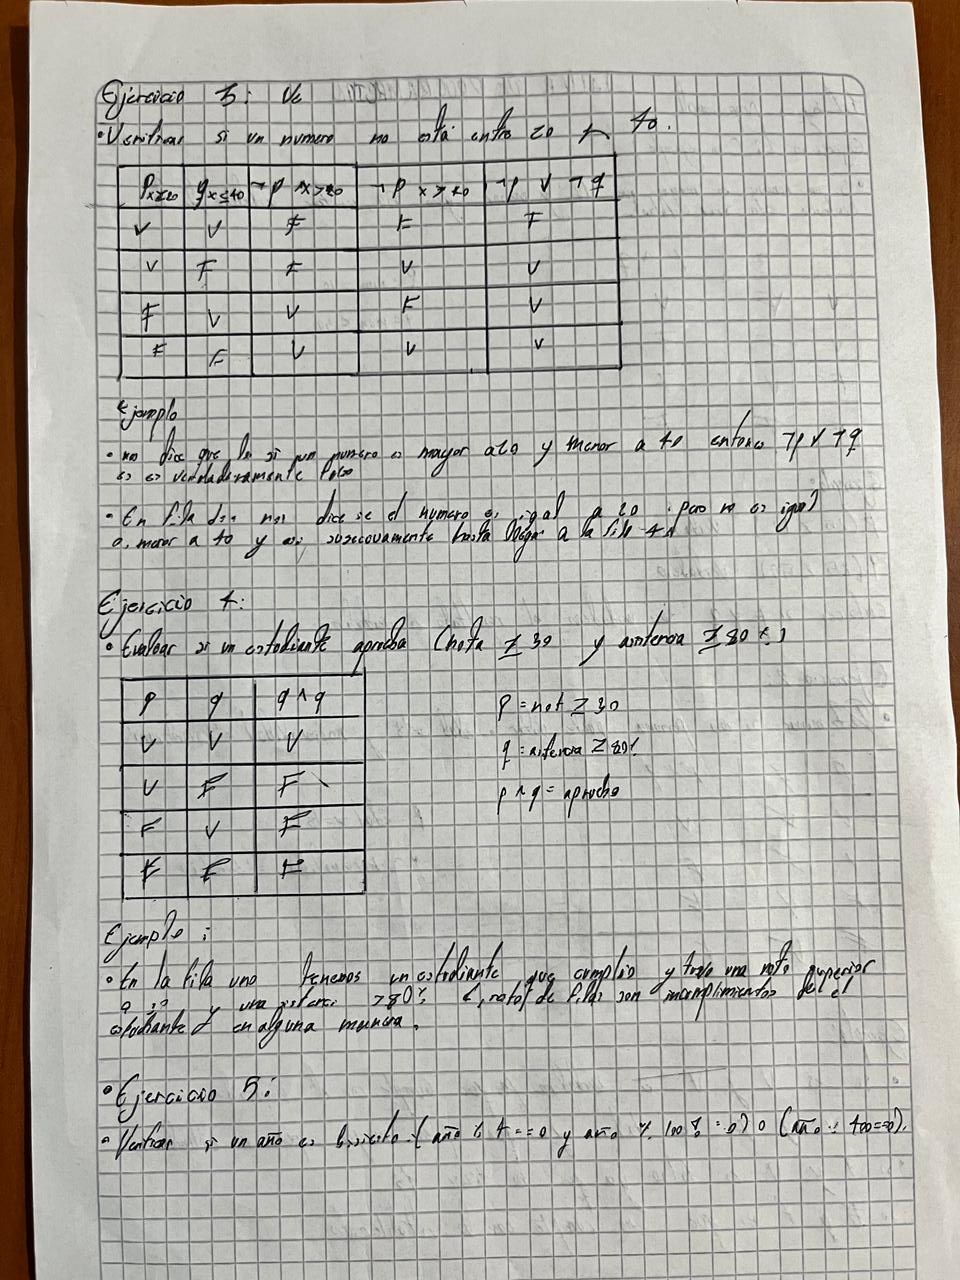 Ejercicio 3: Ve
• Verificar si un numero no está entre 20 y 40.
P x≥20 q x≤40 ¬p x>20 ¬p x>40 ¬p ∨ ¬q
V V F F F
V F F V V
F V V F V
F F V V V
Ejemplo
• no dice que si un numero es mayor a 20 y menor a 40 entonces ¬p ∨ ¬q
es verdaderamente falso
• En fila dos nos dice se el numero es igual a 20 pero no es igual
o menor a 40 y así sucesivamente hasta llegar a la fila 4
Ejercicio 4:
• Evaluar si un estudiante aprueba (nota ≥ 30 y asistencia ≥ 80 %)
p q q ∧ q
V V V
V F F
F V F
F F F
p = not ≥ 30
q = asitencia ≥ 80%
p ∧ q = aprueba
Ejemplo :
• En la fila uno tenemos un estudiante que cumplio y tuvo una nota superior
a 30 y una >80% de filas son incumplimientos del el
estudiante en alguna manera.
• Ejercicio 5:
• Verificar si un año es bisiesto (año % 4 ==0 y año % 100 = 0) o (año % 400==0).